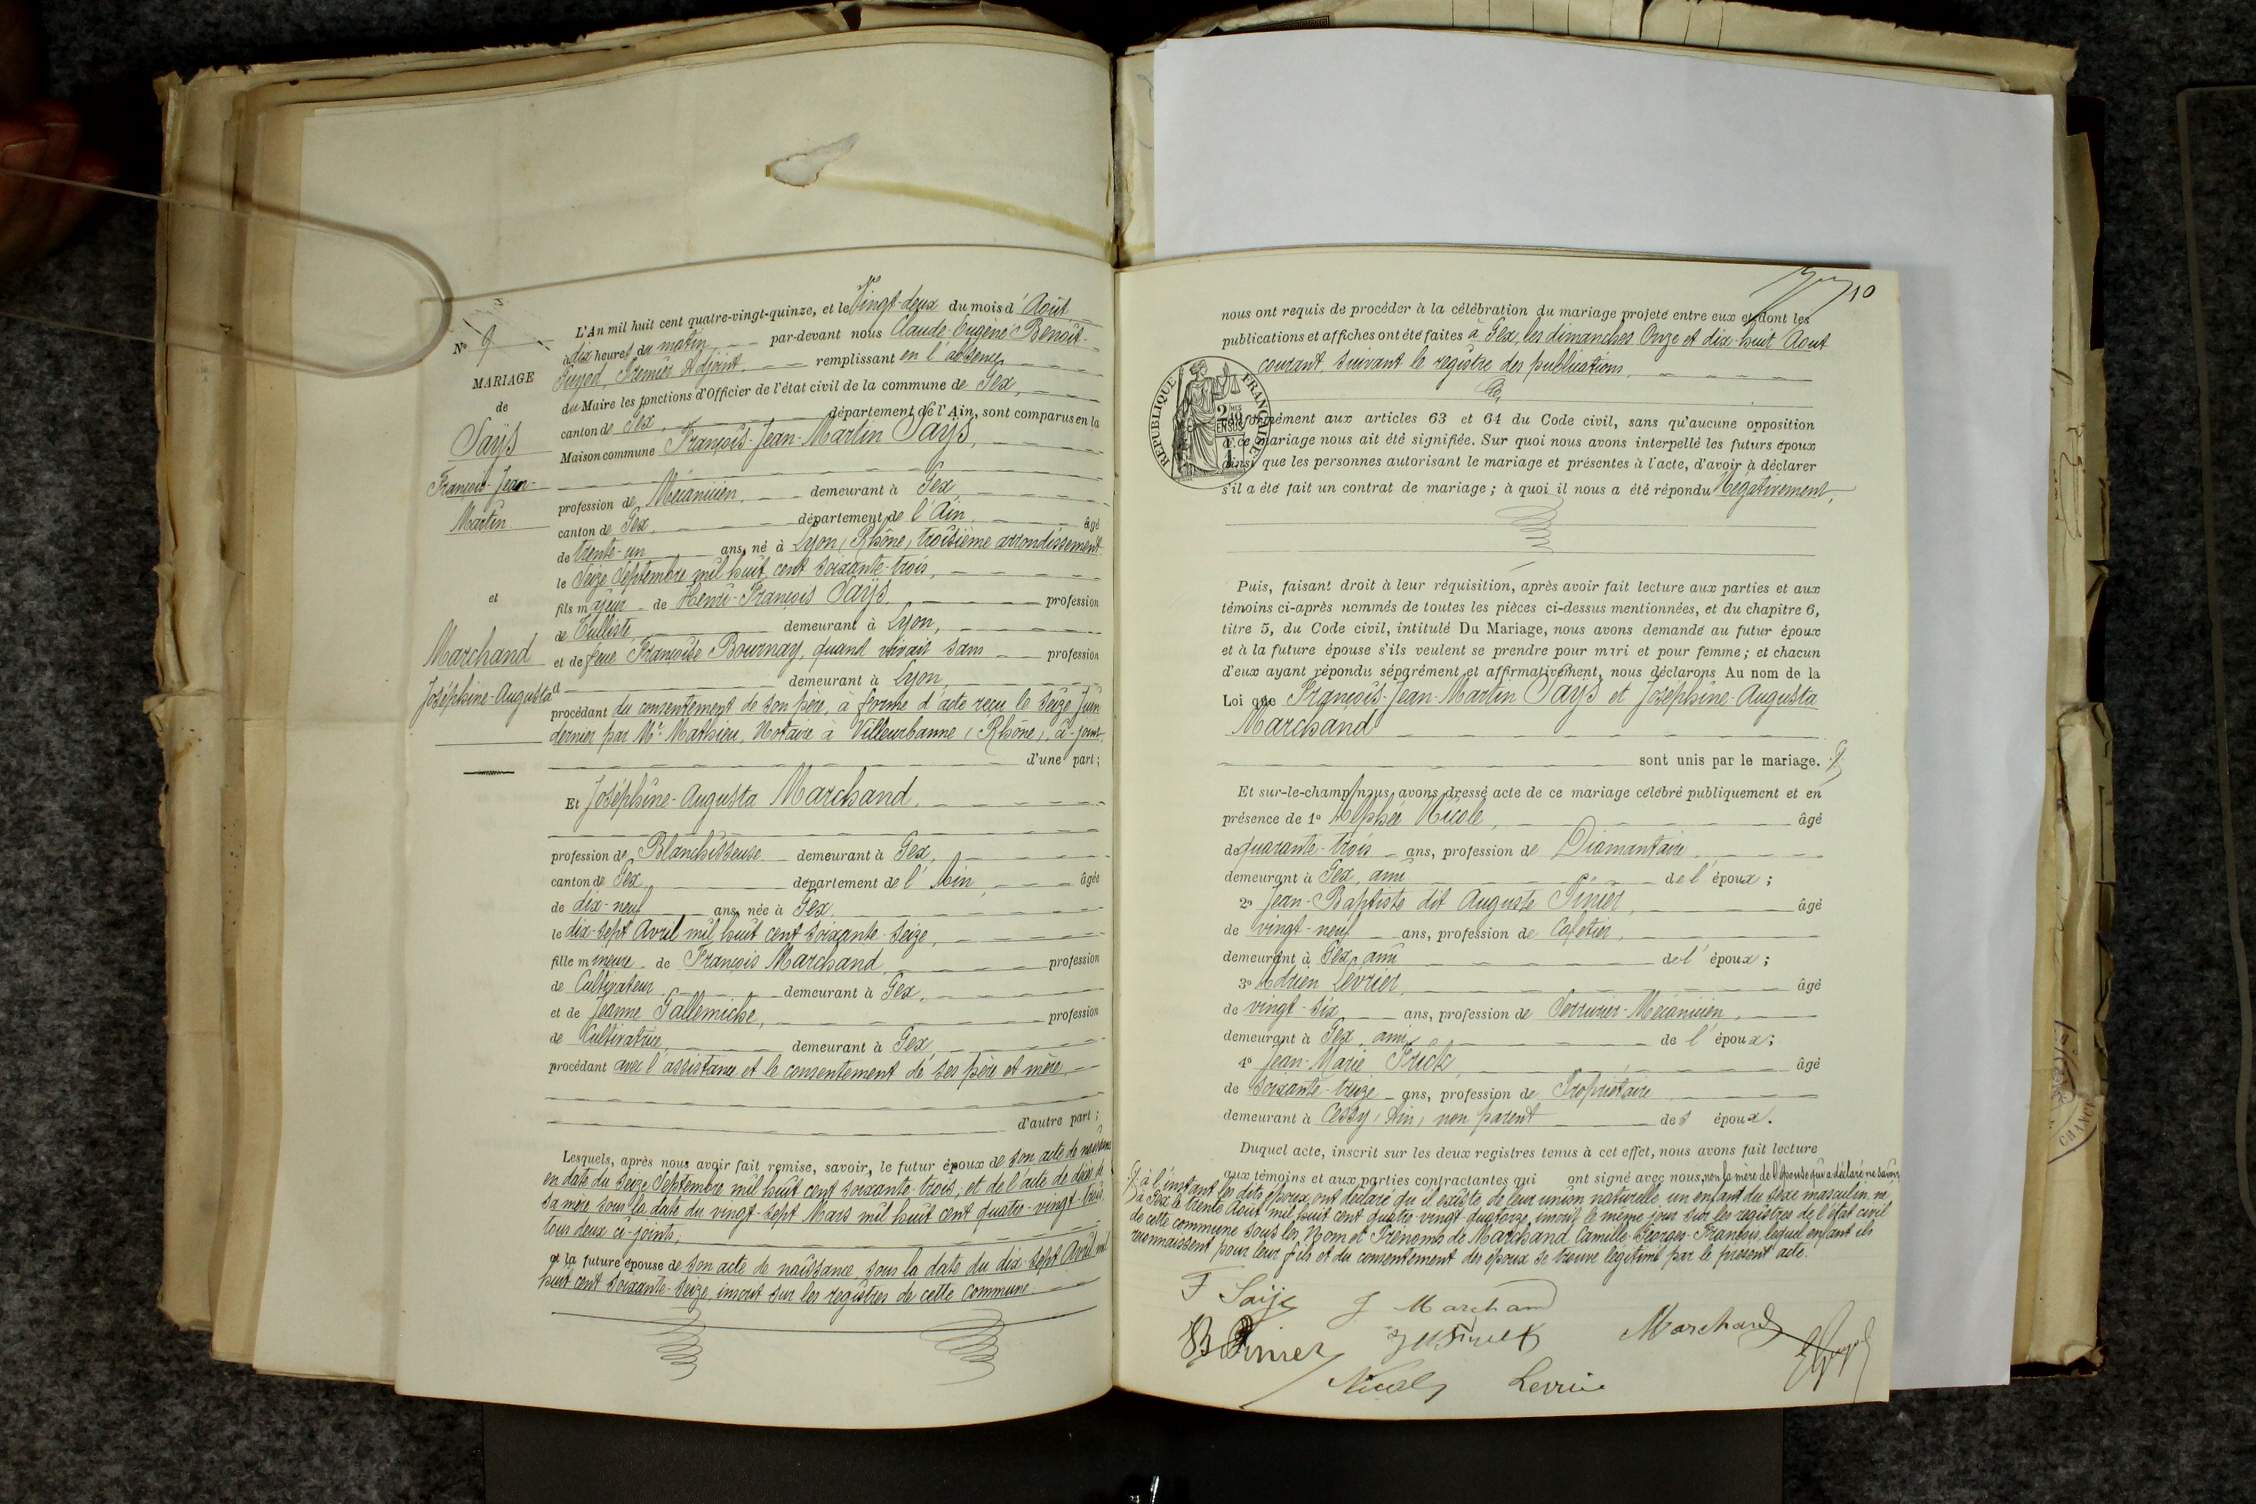 N° 9
MARIAGE
de
Saÿs
François-Jean-
Martin
et
Marchand
Joséphine-Augusta
L'An mil huit cent quatre-vingt-quinze, et le Vingt-deux du mois d'Août
à dix heures du matin par-devant nous Claude-Eugène-Benoît
Premier Adjoint, remplissant en l'absence
du Maire les fonctions d'Officier de l'état civil de la commune de Gex,
canton de Gex, département de l'Ain, sont comparus en la
Maison commune François-Jean-Martin Saÿs,
profession de Mécanicien, demeurant à Gex
canton de Gex, département de l'Ain âgé
de trente-un ans, né à Lyon (Rhône) troisième arrondissement
le Seize Septembre mil huit cent soixante-trois,
fils majeur de Henri-François Saÿs, profession
de Tulliste, demeurant à Lyon,
et de feue Françoise Bournay, quand vivait sans profession
demeurant à Lyon,
procédant du consentement de son père, à forme d'acte reçu le Seize Juin
dernier par Me Mathieu, Notaire à Villeurbanne (Rhône), ci-joint,
d'une part;
Et Joséphine-Augusta Marchand,
profession de Blanchisseuse demeurant à Gex,
canton de Gex, département de l'Ain, âgée
de dix-neuf ans, née à Gex,
le dix-sept Avril mil huit cent soixante-seize,
fille mineure de François Marchand, profession
de Cultivateur demeurant à Gex,
et de Jeanne Gallemiche, profession
de Cultivatrice, demeurant à Gex,
procédant avec l'assistance et le consentement de ses père et mère
d'autre part;
Lesquels, après nous avoir fait remise, savoir, le futur époux de son acte de naissance
en date du Seize Septembre mil huit cent soixante-trois; et de l'acte de décès de
sa mère sous la date du vingt-sept Mars mil huit cent quatre-vingt-trois,
tous deux ci-joints,
et la future épouse de son acte de naissance sous la date du dix-sept Avril mil
huit cent soixante-seize, inscrit sur les registres de cette commune
10
nous ont requis de procéder à la célébration du mariage projeté entre eux et dont les
publications et affiches ont été faites à Gex, les dimanches Onze et dix-huit Août
courant, suivant le registre des publications,
RÉPUBLIQUE FRANÇAISE
conformément aux articles 63 et 64 du Code civil, sans qu'aucune opposition
à ce mariage nous ait été signifiée. Sur quoi nous avons interpellé les futurs époux
ainsi que les personnes autorisant le mariage et présentes à l'acte, d'avoir à déclarer
s'il a été fait un contrat de mariage; à quoi il nous a été répondu Négativement,
Puis, faisant droit à leur réquisition, après avoir fait lecture aux parties et aux
témoins ci-après nommés de toutes les pièces ci-dessus mentionnées, et du chapitre 6,
titre 5, du Code civil, intitulé Du Mariage, nous avons demandé au futur époux
et à la future épouse s'ils veulent se prendre pour mari et pour femme; et chacun
d'eux ayant répondu séparément et affirmativement, nous déclarons Au nom de la
Loi que François-Jean-Martin Saÿs et Joséphine-Augusta
Marchand
sont unis par le mariage.
Et sur-le-champ nous avons dressé acte de ce mariage célébré publiquement et en
présence de 1° Alphée Nicole, âgé
de quarante-trois ans, profession de Diamantaire
demeurant à Gex, ami de l'époux;
2° Jean-Baptiste dit Auguste Pinier, âgé
de vingt-neuf ans, profession de Cafetier,
demeurant à Gex, ami de l'époux;
3° Adrien Levrier, âgé
de vingt-six ans, profession de Serrurier-Mécanicien,
demeurant à Gex, ami de l'époux;
4° Jean-Marie Frick, âgé
de soixante-treize ans, profession de Propriétaire
demeurant à Cessy (Ain) non parent des époux.
Duquel acte, inscrit sur les deux registres tenus à cet effet, nous avons fait lecture
aux témoins et aux parties contractantes qui ont signé avec nous, non la mère de l'épouse qui a déclaré ne savoir,
à l'instant les dits époux ont déclaré qu'il existe de leur union naturelle un enfant du sexe masculin né
à Gex le trente Août mil huit cent quatre-vingt-quatorze, inscrit le même jour sur les registres de l'état civil
de cette commune sous les Nom et Prénoms de Marchand Camille-Georges-François, lequel enfant ils
reconnaissent pour leur fils et du consentement des époux se trouve légitimé par le présent acte.
F Saÿs J Marchand
B Pinier Marchand
Nicole Levrier